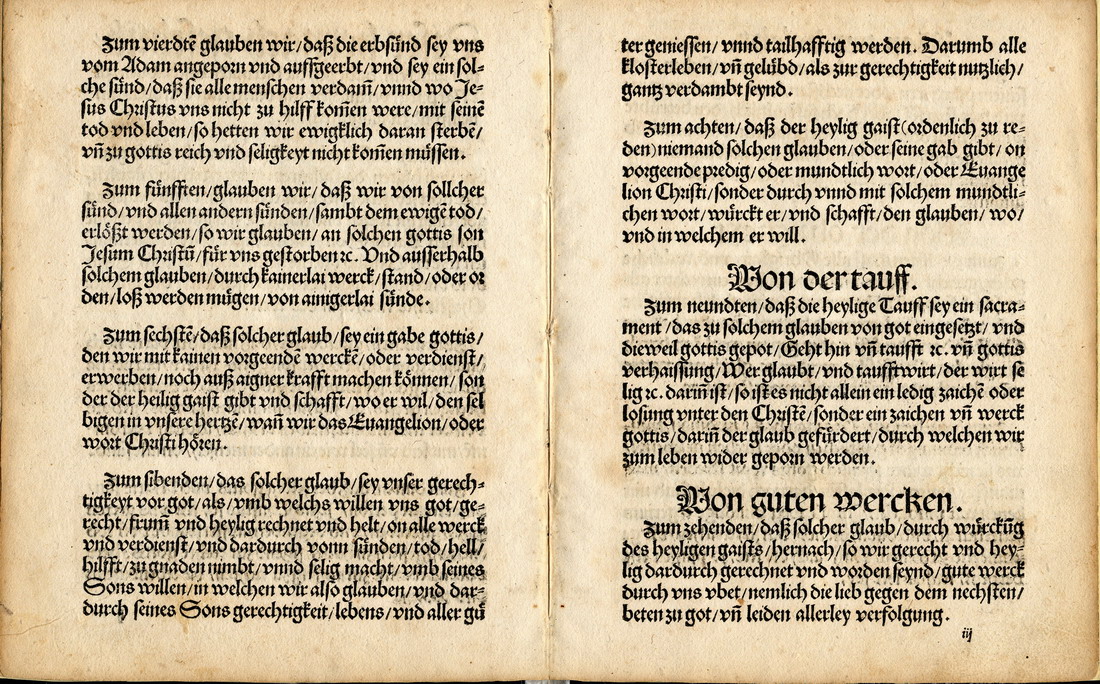 Zum vierdtē glauben wir/daß die erbsünd sey vns
vom Adam angeporn vnd auffgeerbt/vnd sey ein sol⸗
che sünd/daß sie alle menschen verdam̄/vnnd wo Je⸗
sus Christus vns nicht zu hilff kom̄en were/mit seinē
tod vnd leben/so hetten wir ewigklich daran sterbē/
vn̄ zu gottis reich vnd seligkeyt nicht kom̄en müssen.
Zum fünfften/glauben wir/daß wir von sollcher
sünd/vnd allen andern sünden/sambt dem ewigē tod/
erlößt werden/so wir glauben/an solchen gottis son
Jesum Christū/für vns gestorben ꝛc. Vnd ausserhalb
solchem glauben/durch kainerlai werck/stand/oder oꝛ
den/loß werden mügen/von ainigerlai sünde.
Zum sechstē/daß solcher glaub/sey ein gabe gottis/
den wir mit kainen vorgeendē werckē/oder verdienst/
erwerben/noch auß aigner krafft machen können/son
der der heilig gaist gibt vnd schafft/wo er wil/den sel
bigen in vnsere hertzē/wan̄ wir das Euangelion/oder
wort Christi hören.
Zum sibenden/das solcher glaub/sey vnser gerech⸗
tigkeyt vor got/als/vmb welchs willen vns got/ge⸗
recht/frum̄ vnd heylig rechnet vnd helt/on alle werck
vnd verdienst/vnd dardurch vonn sünden/tod/hell/
hilfft/zu gnaden nimbt/vnnd selig macht/vmb seines
Sons willen/in welchen wir also glauben/vnd dar⸗
durch seines Sons gerechtigkeit/lebens/vnd aller gü
ter geniessen/vnnd tailhafftig werden. Darumb alle
klosterleben/vn̄ gelübd/als zur gerechtigkeit nutzlich/
gantz verdambt seynd.
Zum achten/daß der heylig gaist(ordenlich zu re⸗
den)niemand solchen glauben/oder seine gab gibt/on
vorgeende predig/oder mundtlich wort/oder Euange
lion Christi/sonder durch vnnd mit solchem mundtli⸗
chen wort/würckt er/vnd schafft/den glauben/wo/
vnd in welchem er will.
Von der tauff.
Zum neundten/daß die heylige Tauff sey ein sacra⸗
ment/das zu solchem glauben von got eingesetzt/vnd
dieweil gottis gepot/Geht hin vn̄ taufft ꝛc. vn̄ gottis
verhaissung/Wer glaubt/vnd taufft wirt/der wirt se
lig ꝛc. darin̄ ist/so ist es nicht allein ein ledig zaichē oder
losung vnter den Christē/sonder ein zaichen vn̄ werck
gottis/darin̄ der glaub gefürdert/durch welchen wir
zum leben wider geporn werden.
Von guten wercken.
Zum zehenden/daß solcher glaub/durch würckūg
des heyligen gaists/hernach/so wir gerecht vnd hey⸗
lig dardurch gerechnet vnd worden seynd/gute werck
durch vns vbet/nemlich die lieb gegen dem nechsten/
beten zu got/vn̄ leiden allerley verfolgung.
iij